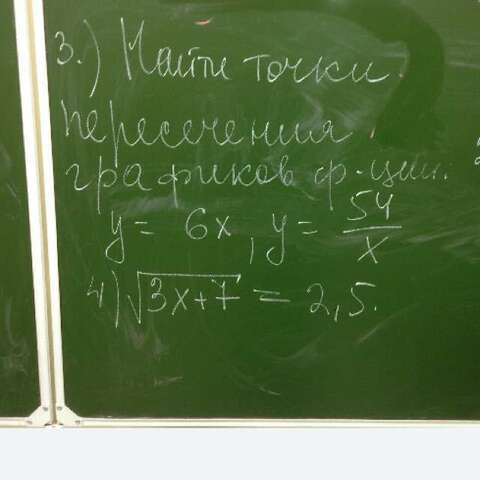 3.) Найти точки
пересечения
графиков ф-ций:
y = 6x, y = 54/x
4) √3x+7 = 2,5.